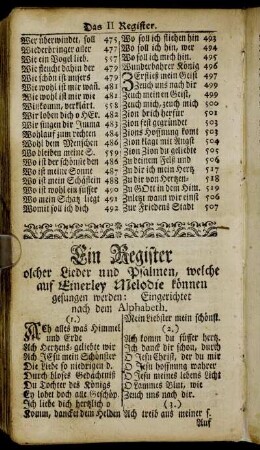 Das II Register.
Wer überwindet, soll 475
Wiederbringer aller 477
Wie ein Vogel lieb. 477
Wie fleucht dahin der 479
Wie schön ist unsers 480
Wie wohl ist mir wañ 481
Wie wohl ist mir wie 482
Willkomm, verklärt. 483
Wir loben dich o HEr. 483
Wir singen dir Imma 483
Wohlauf zum rechten 484
Wohl dem Menschen 486
Wo bleiben meine S. 489
Wo ist der schönste den 486
Wo ist meine Sonne 487
Wo ist mein Schäflein 488
Wo ist wohl ein süsser 490
Wo mein Schatz liegt 491
Womit soll ich dich 492
Wo soll ich fliehen hin 493
Wo soll ich hin, wer 494
Wo soll ich mich hin. 495
Wunderbahrer König 496
Zerfließ mein Geist 497
Zeuch uns nach dir 499
Zeuch meinen Geist, 499
Zeuch mich, zeuch mich 500
Zion brich herfür 501
Zion fest gegründet 501
Zions Hoffnung komt 503
Zion klagt mit Angst 504
Zion Zion du geliebte 505
Zu deinem Felß und 506
Zu dir ich mein Hertz 517
Zu dir von Hertzen 518
Zu GOtt in dem Him. 519
Zuletzt wann wir einst 506
Zur Friedens Stadt 507
Ein Register
solcher Lieder und Psalmen, welche
auf Einerley Melodie können
gesungen werden: Eingerichtet
nach dem Alphabeth.
(1.)
Ach alles was Himmel
und Erde
Ach Hertzens geliebte wir
Ach JEsu mein Schönster
Die Liebe so niedrigen d.
Durch bloses Gedächtniß
Du Tochter des Königs
Es lobet doch alle Geschöp.
Ich liebe dich hertzlich o
Komm, dancket dem Helden
Mein Liebster mein schönst.
(2.)
Ach komm du süsser hertz.
Ich danck dir schon, durch
O JEsu Christ, der du mir
O JEsu hoffnung wahrer
O JEsu meines lebens Licht
O Lammes Blut, wie
Zeuch uns nach dir.
(3.)
Ach treib aus meiner s.
Auf